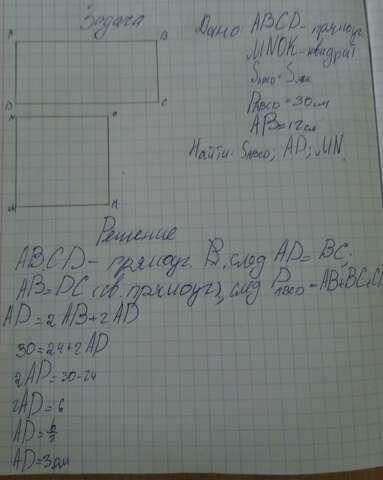 Задача
A B
D C
Дано: ABCD - прямоуг.
MNOK - квадрат
PABCD = 30 см
AB = 12 см
Найти: SABCD; AD; MN
Решение
ABCD - прямоуг. след AD = BC;
AB = DC (св. прямоуг), след PABCD = AB+BC+CD
AD = 2AB + 2AD
30 = 24 + 2AD
2AD = 30 - 24
2AD = 6
AD = 6/2
AD = 3 см